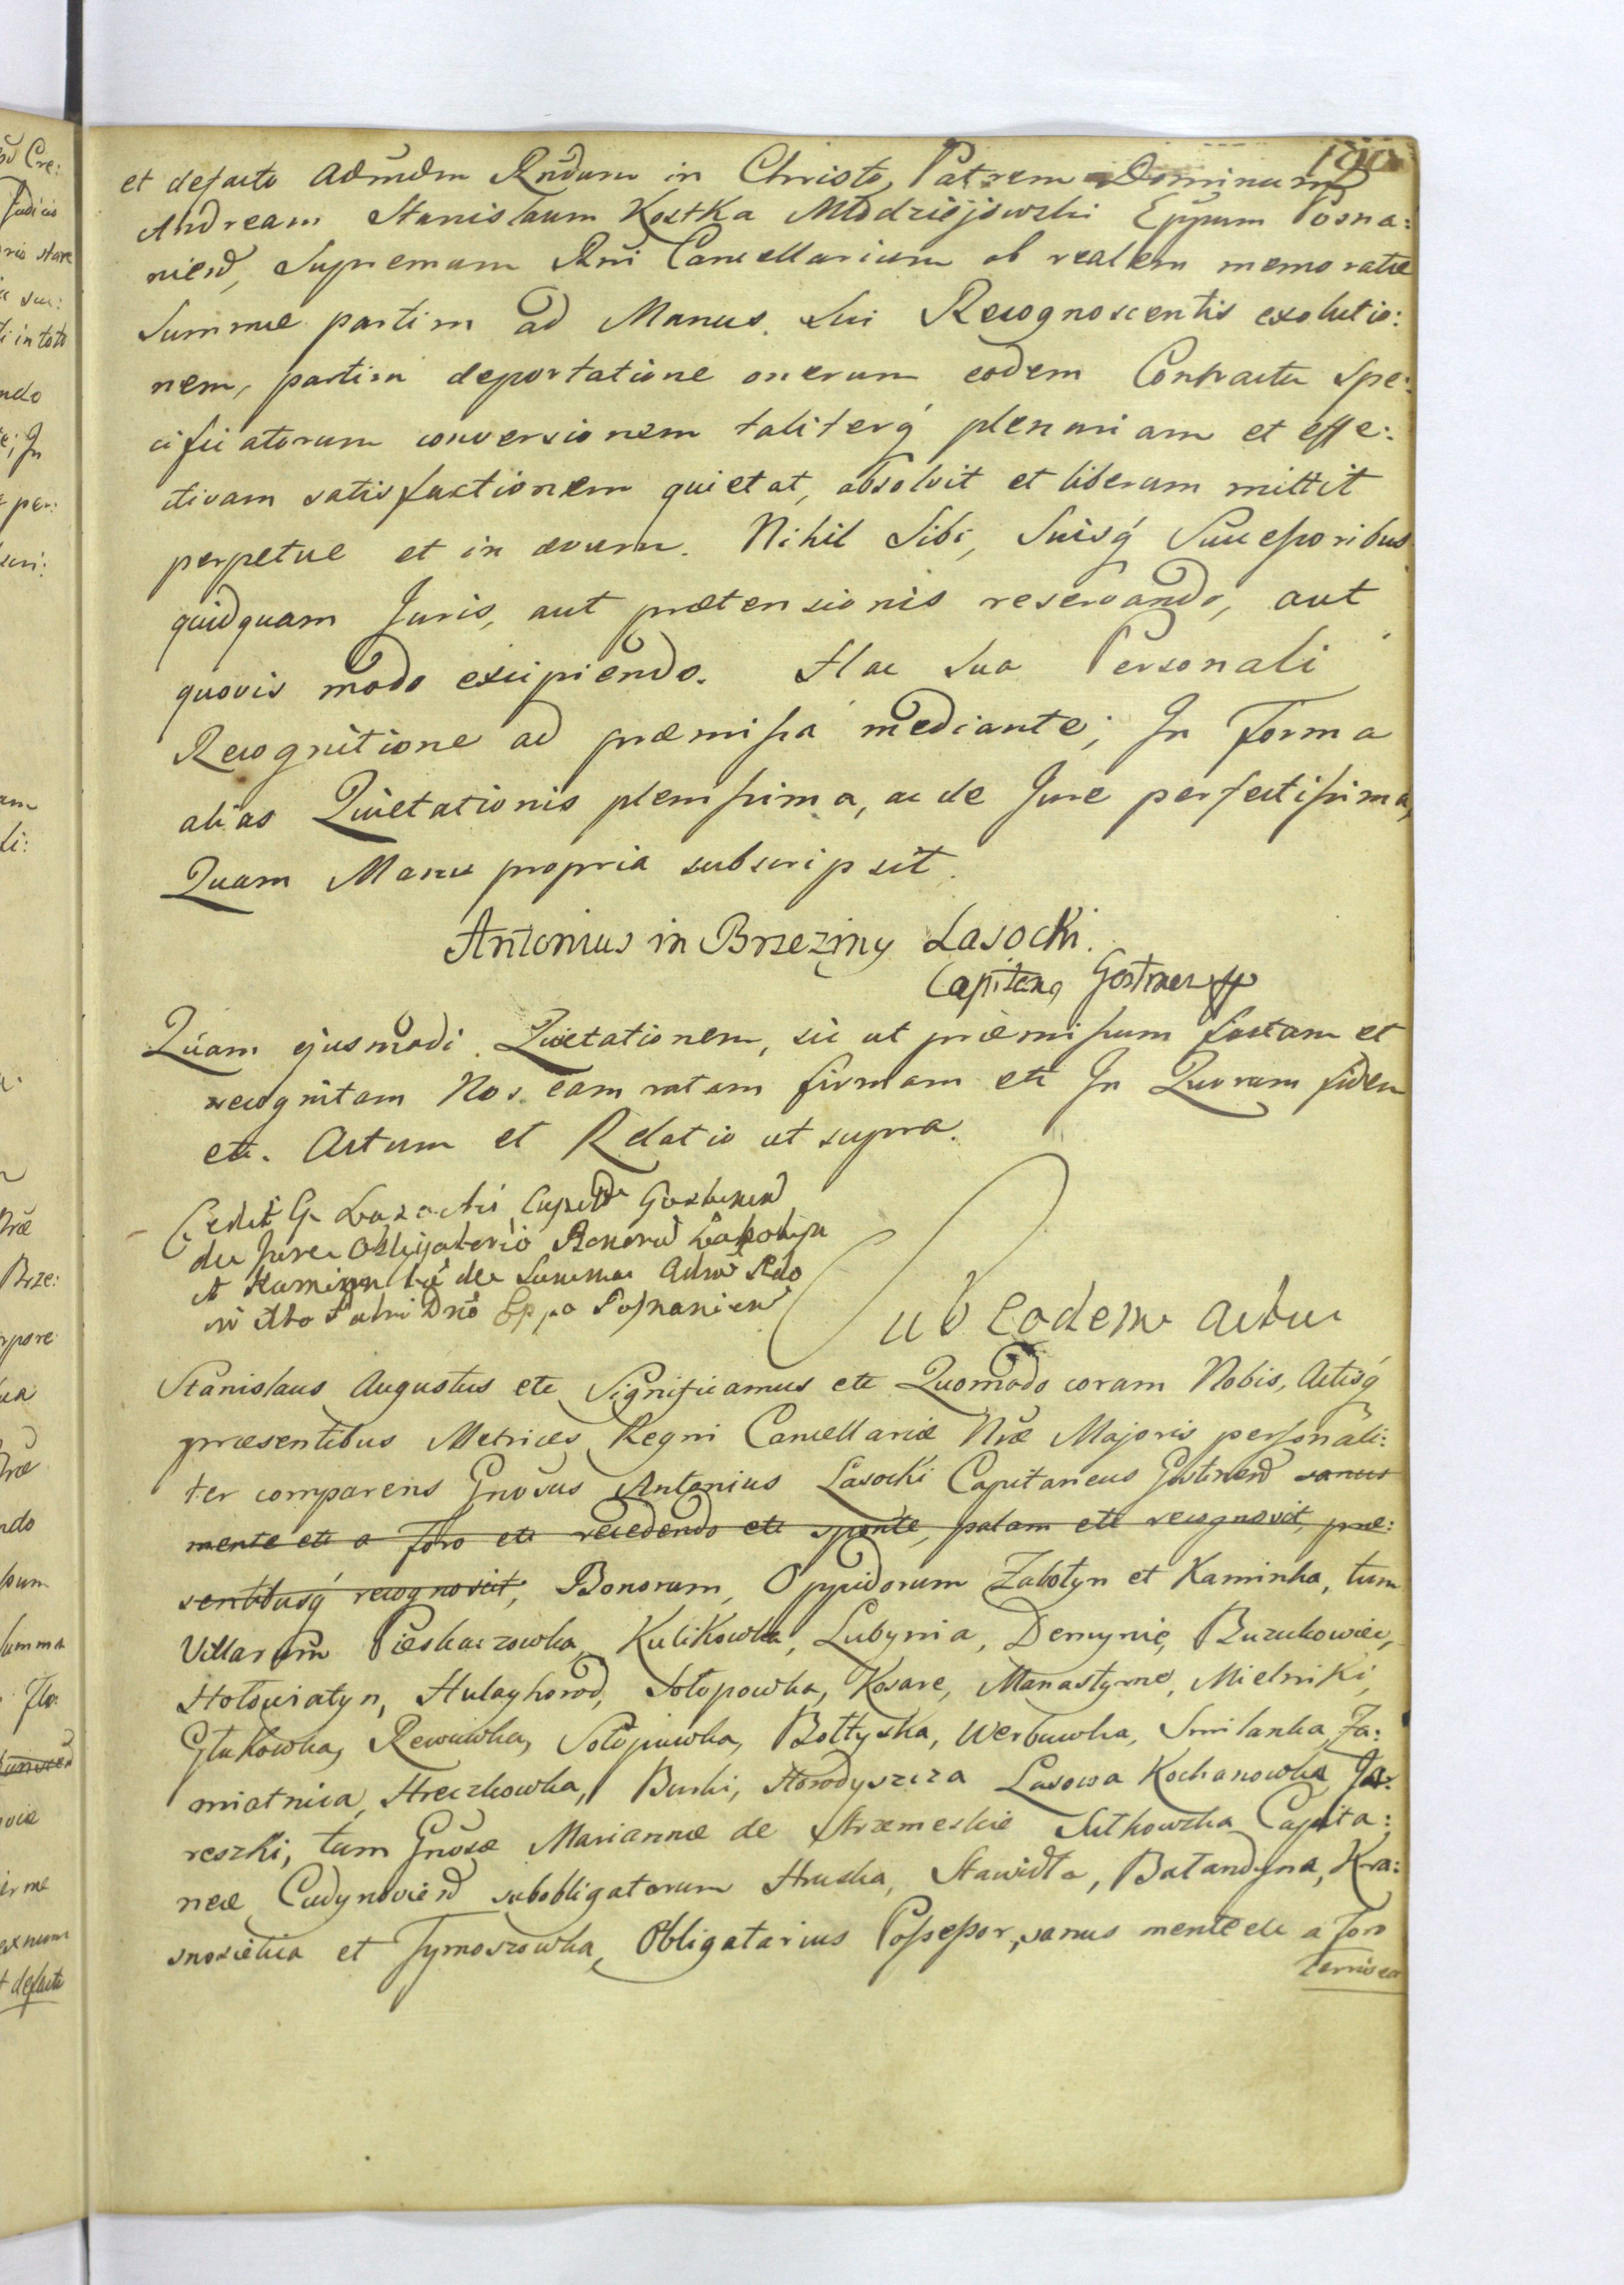 et defacto Admdm Rndum in Christo Patrem Dominum
Andream Stanislaum Kostka Młodziejowski Eppum Posna:
niens, Supremum Rni Cancellarium ob realem memoratæ
Summæ partim ad Manus Sui Recognoscentis exolutio:
nem, partim deportatione onerum eodem Contractu Spe:
cificatorum conversionem taliterq́ plenariam et effe:
ctivam satisfactionem quietat, absolvit et liberum mittit
perpetue et in ævum. Nihil Sibi, Suisq́ Successoribus
quidquam Juris, aut prætensionis reservando, aut
quovis modo excipiendo. Hac Sua Personali
Recognitione ad præmissa mediante; In Forma
alias Quietationis plenissima, ac de Jure perfectissima,
Quam Manu propria subscripsit.
Antonius in Brzeziny Lasocki.
Capitans Gostinensis
Quam ejusmodi Quietationem, sic ut præmissum factam et
recognitam Nos eam ratam firmam etc In Quorum fidem
etc. Actum et Relatio ut supra.
Cedit G. Lasocki Capitas Gostinens
de Jure Obligatorio Bonorũ Zabotyn
et Kaminka de Summa Admo Rdo
in Xto Patri Dno Eppo Posnaniens
Sub Eodem Actu
Stanislaus Augustus etc Significamus etc Quomodo coram Nobis, Actisq́
præsentibus Metrices Regni Cancellariæ Nræ Majoris personali:
ter comparens Gnosus Antonius Lasocki Capitaneus Gostinens sanus
mente etc a foro etc recedendo etc sponte, palam etc recognovit, præ:
sentibusq́ recognoscit, Bonorum, Oppidorum Zabotyn et Kaminka, tum
Villarum Pieskaczowka, Kulikowka, Lubynia, Demynie, Buzukowiec,
Hołowiatyn, Hulayhorod, Sołopowka, Kosare, Manastyrne, Mielniki,
Głukowka, Rewuwka, Sołopiuwka, Bołtyska, Werbuwka, Smilanka, Za:
miatnica, Hreczkowka, Burki, Horodyszcza Lasowa Kochanowka, Ja:
reszki, tum Gnosæ Mariannæ de Strzemeskie Sutkowska Capita:
neæ Cudynoviens subobligatorum Hruska, Stawidła, Bałandyna, Kra:
snosielica et Tymoszowka, Obligatarius Possessor, sanus mente etc a foro